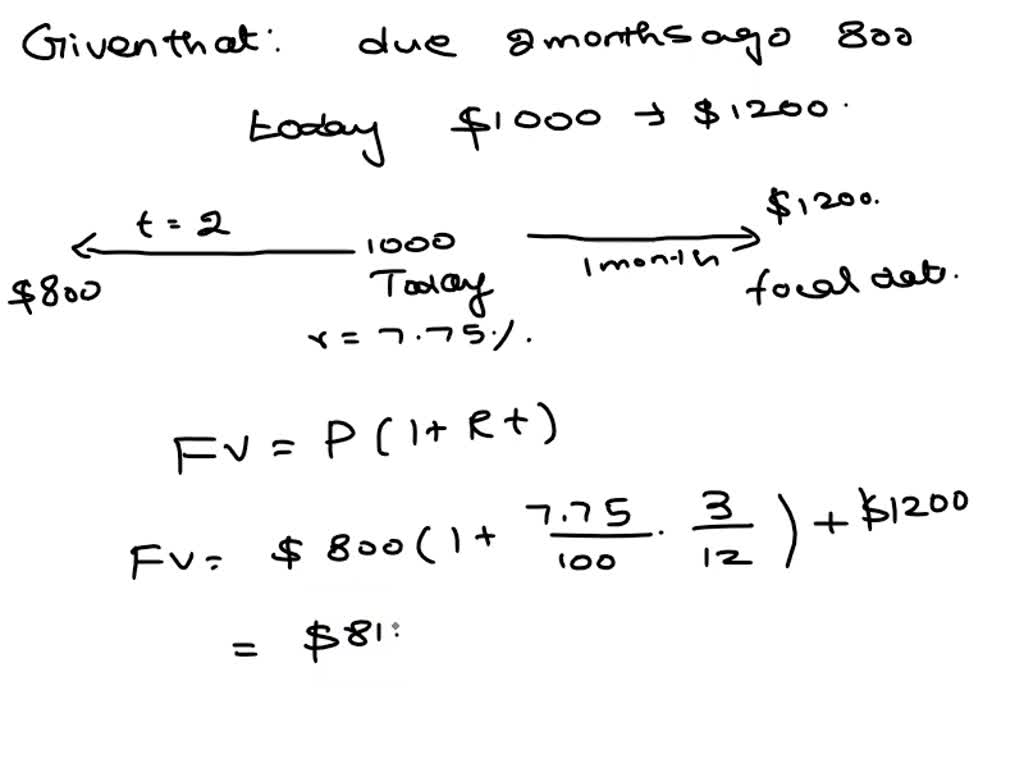 Given that: due 2 months ago 800
today $1000 → $1200.
t = 2 $1200.
$800 1000 1 month
Today focal dat.
r = 7.75%.
FV = P(1+Rt)
FV = $800(1+ 7.75/100 · 3/12) + $1200
= $81: